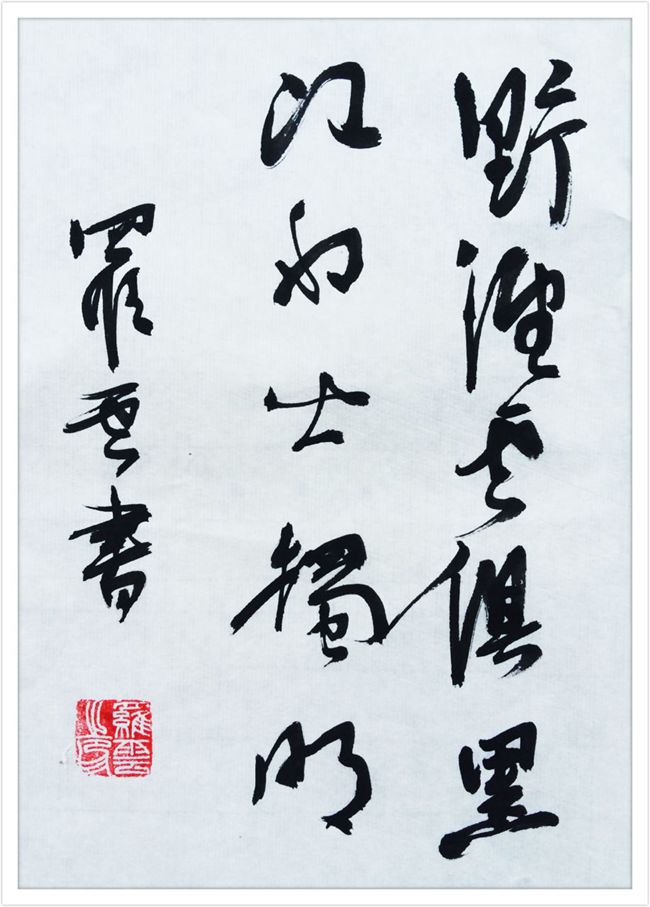 野徑雲俱黑
江船火獨明
羅雲書
羅雲